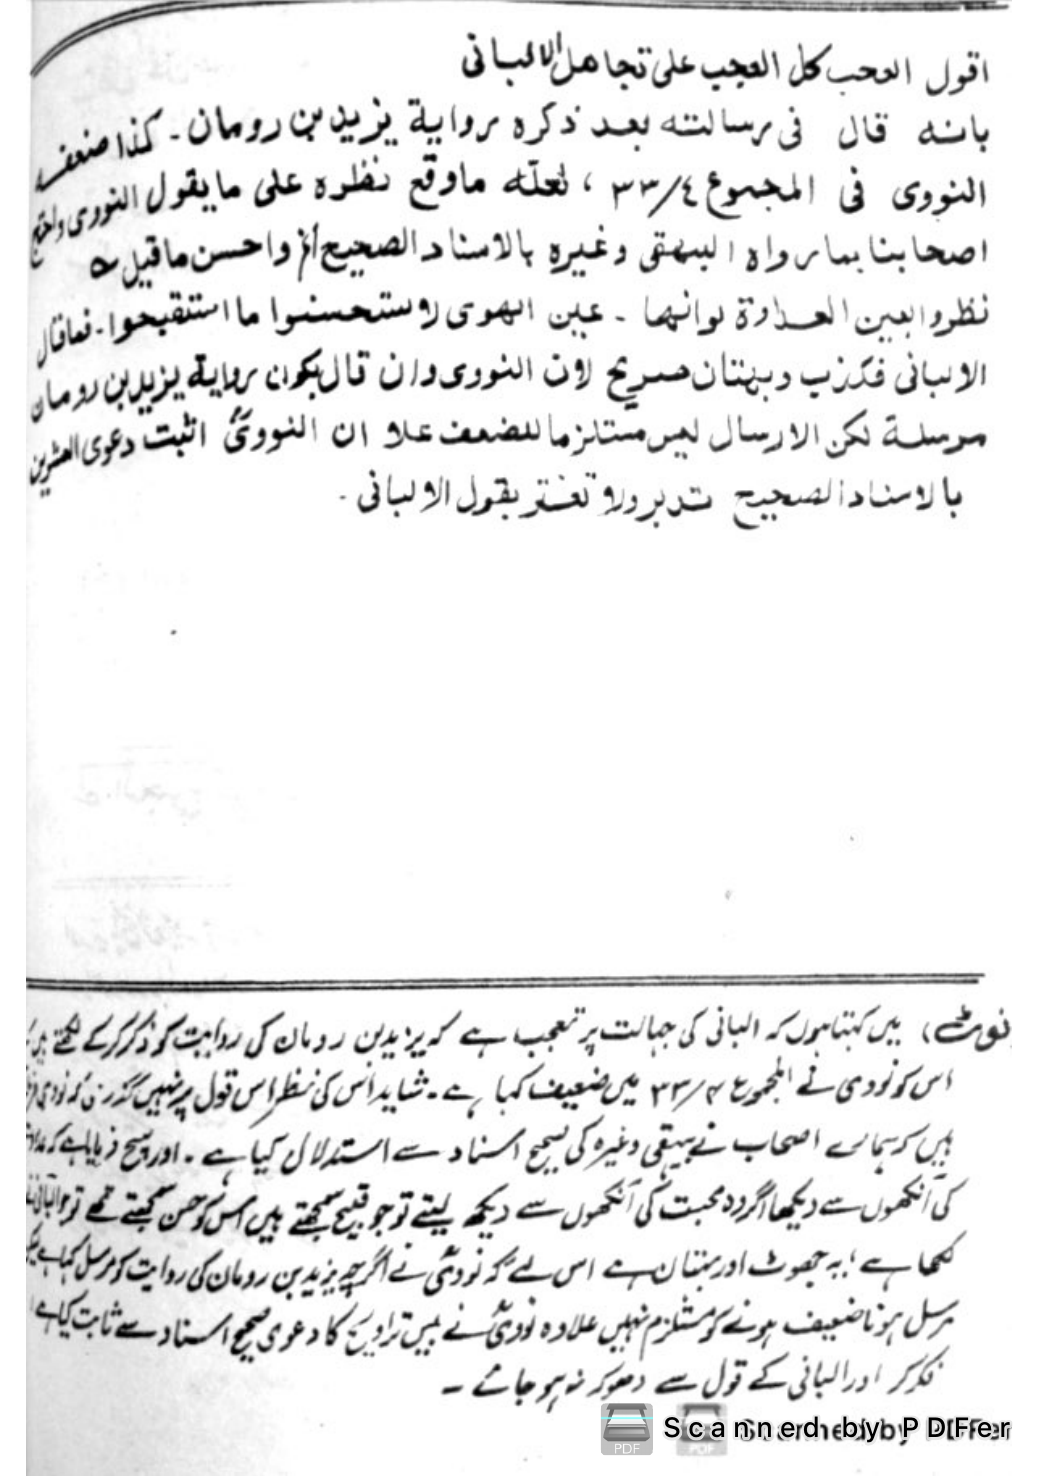 اقول العجب كل العجب على تجاهل الالبانى
بانه قال فى رسالته بعد ذكره رواية يزيد بن رومان۔ كذا ضعفه
النووى فى المجموع ٤/٣٣ ، لعلّه ما وقع نظره على ما يقول النووى واحتج
اصحابنا بما رواه البيهقى وغيره بالاسناد الصحيح الخ واحسن ما قيل ے
نظروا بعين العداوة لو انها ۔ عين الهوى لاستحسنوا ما استقبحوا۔ فما قال
الالبانى فكذب وبهتان صريح لان النووى وان قال بكون رواية يزيد بن رومان
مرسلة لكن الارسال ليس مستلزما للضعف علا ان النووىؒ اثبت دعوى العشرين
بالاسناد الصحيح تدبر ولا تغتر بقول الالبانى ۔
نوٹ) میں کہتا ہوں کہ البانی کی جہالت پر تعجب ہے کہ یزید بن رومان کی روایت کو ذکر کرکے لکھتے ہیں
اس کو نووی نے المجموع ۴/۳۳ میں ضعیف کہا ہے۔ شاید اس کی نظر اس قول پر نہیں گذری کہ نووی
ہیں کہ ہمارے اصحاب نے بیہقی وغیرہ کی صحیح اسناد سے استدلال کیا ہے ۔ اور سچ فرمایا ہے کہ
کی آنکھوں سے دیکھا اگر وہ محبت کی آنکھوں سے دیکھ لیتے تو جو قبیح سمجھتے ہیں اس کو حسن سمجھتے تھے تو جو البانی نے
لکھا ہے یہ جھوٹ اور بہتان ہے اس لئے کہ نوویؒ نے اگرچہ یزید بن رومان کی روایت کو مرسل کہا ہے
مرسل ہونا ضعیف ہونے کو مستلزم نہیں علاوہ نوویؒ نے بیس تراویح کا دعوی صحیح اسناد سے ثابت کیا ہے
فکر کر اور البانی کے قول سے دھوکہ نہ ہو جائے ۔
Scanned by PDFer